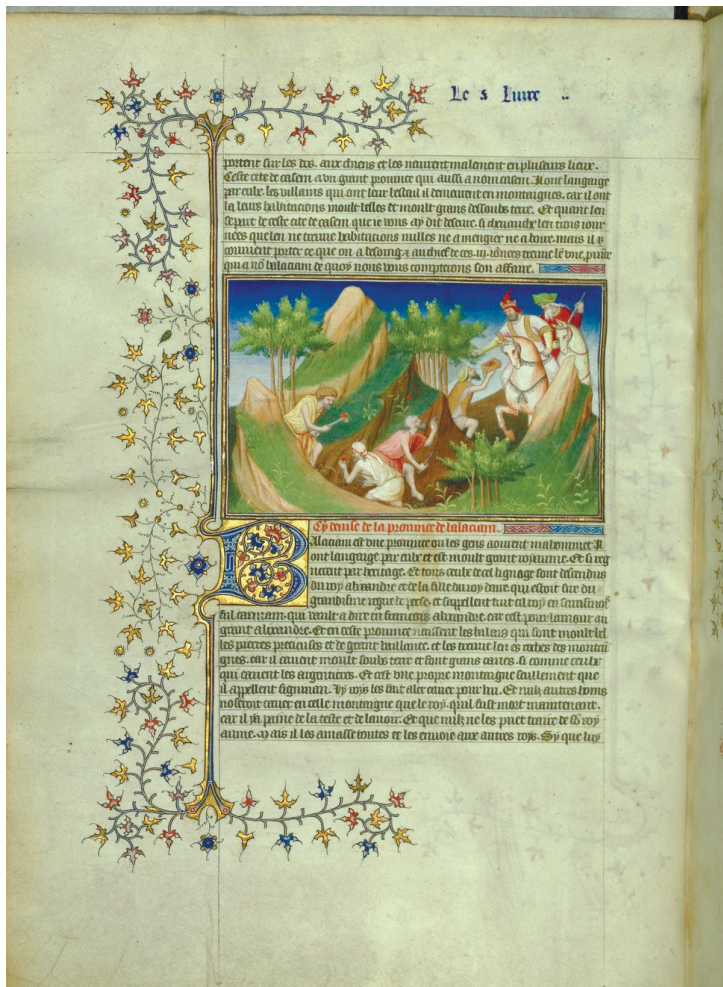 Le s liure
portent sur les dos. aux chiens et les naurent malement en pluseurs lieux.
Ceste cite de casem a vn grant prouince qui aussi a nom casem. Il ont langaige
par eulx. les villains qui ont leur bestail il demeurent en montaignes. car il ont
la leurs habitacions moult belles et moult grans dessoubz terre. Et quant len
se part de ceste cite de casem que ie vous ay dit deseure. si cheuauche len trois iour
nees que len ne treuue habitacions nulles ne a mengier ne a boire. mais il
conuient porter ce que on a besoing et au chief de ces .iii. iōnees treuue lē vne prouīce
qui a nō balaciam de quoy nous vous compterons son affaire.
Cy deuise de la prouince de balaciam.
Balaciam est vne prouince ou les gens aourent mahommet. Il
ont langaige par eulx et est moult grant royaume. Et si reg
nent par heritage. Et tous ceulx de cel lignage sont descendus
du roy alixandre et de la fille du roy daire qui estoit sire du
grandisme regne de perse. et sappellent tuit cil roy en sarrasinois
culcarniam. qui vault a dire en francois alixandre. car cest pour lamour au
grant alixandre. Et en ceste prouince naissent les balais qui sont moult bel
les pierres precieuses et de grant vaillance. et les treuue len es roches des montai
gnes. car il cauent moult soubz terre et font grans caues. si comme ceulx
qui cauent les argentieres. Et cest vne propre montaigne seullement que
il appellent sighinan. Ly roys les fait aler cauer pour lui. Et nulz autres homs
noseroit cauer en celle montaigne que le roy. quil fust mort maintenant.
car il ya paine de la teste et de lauoir. Et que nulz ne les puet traire de sō roy
aume. Mais il les amasse toutes et les enuoie aux autres roys. Sy que luy